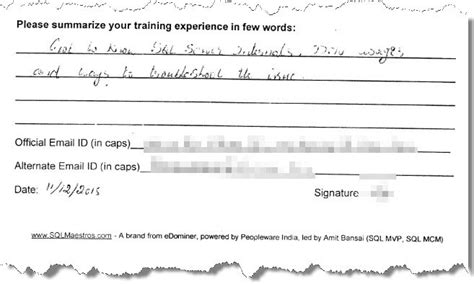 Please summarize your training experience in few words:
Got to know SQL Server internals,
and ways to troubleshoot the issue.
Official Email ID (in caps)
Alternate Email ID (in caps)
Date: 11/12/2015
Signature
www.SQLMaestros.com - A brand from eDominer, powered by Peopleware India, led by Amit Bansal (SQL MVP, SQL MCM)